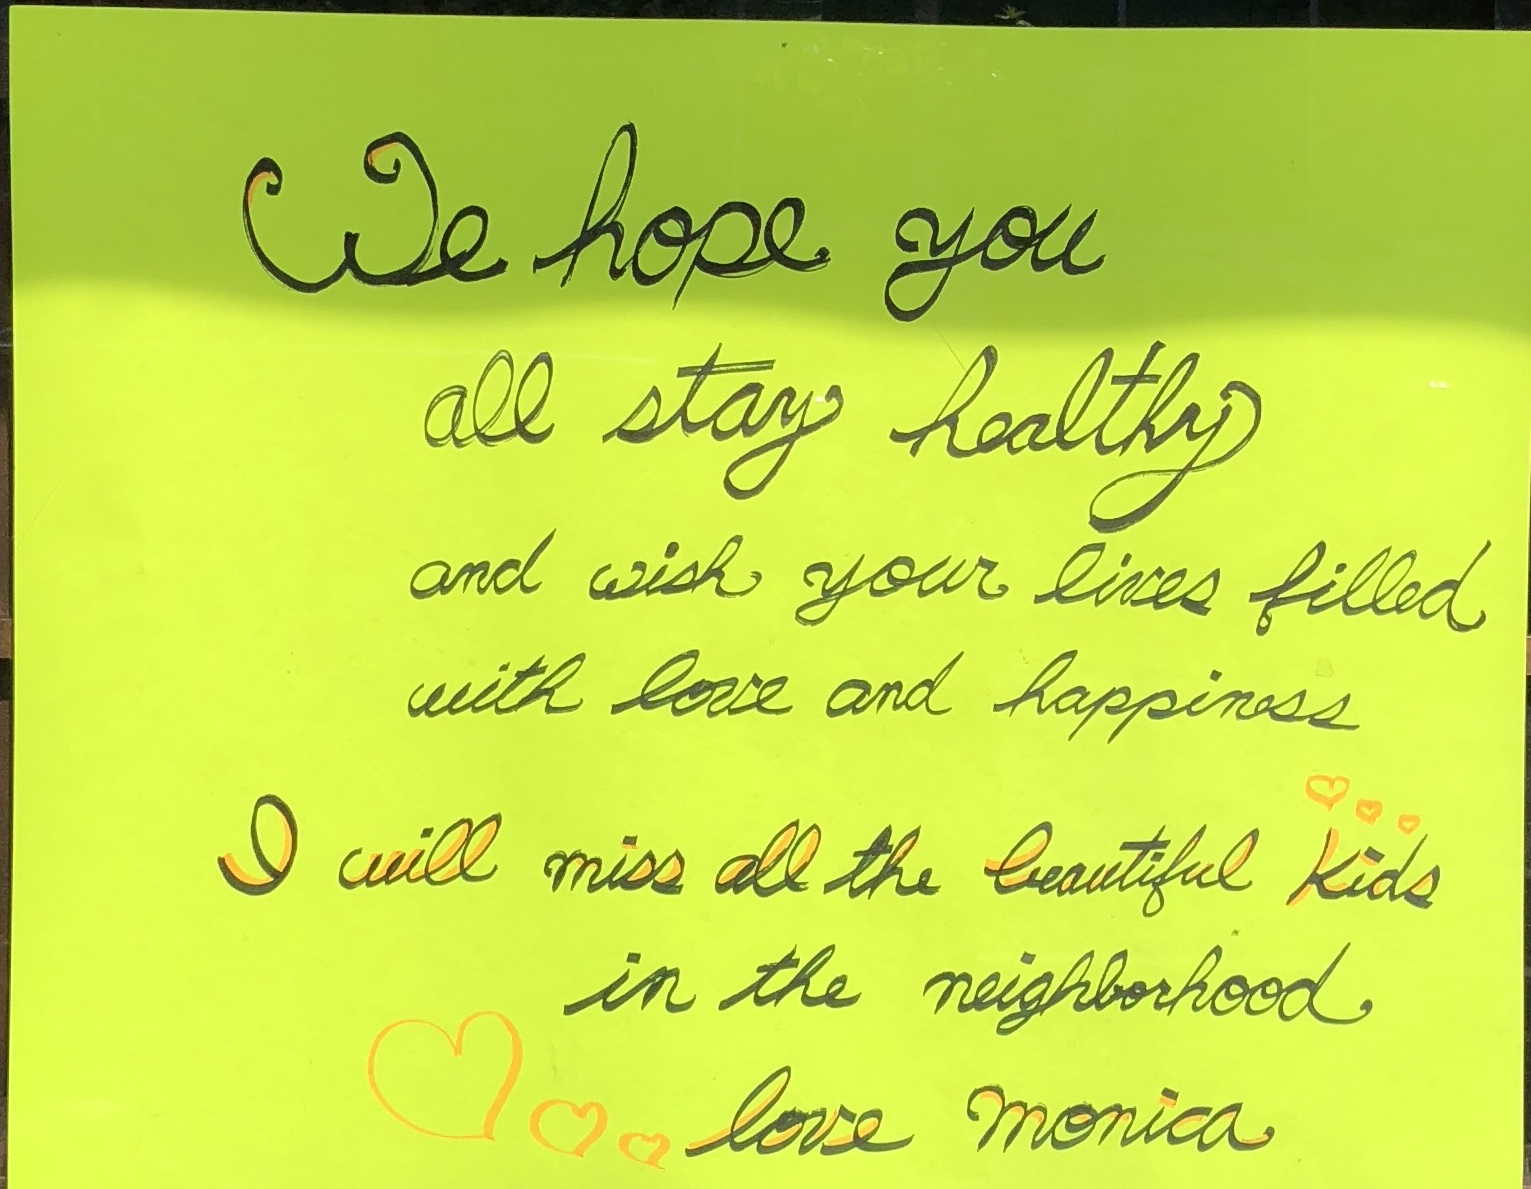 We hope you
all stay healthy
and wish your lives filled
with love and happiness
I will miss all the beautiful Kids
in the neighborhood
love Monica